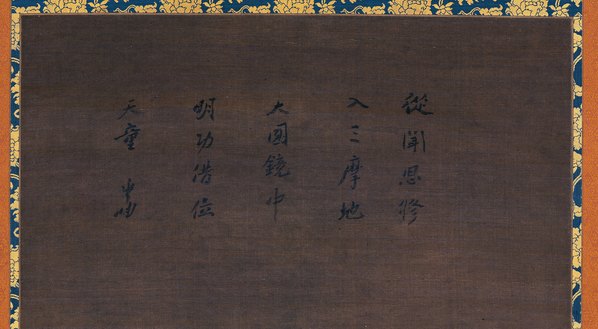 從聞思修
入三摩地
大圓鏡中
明功借位
天童